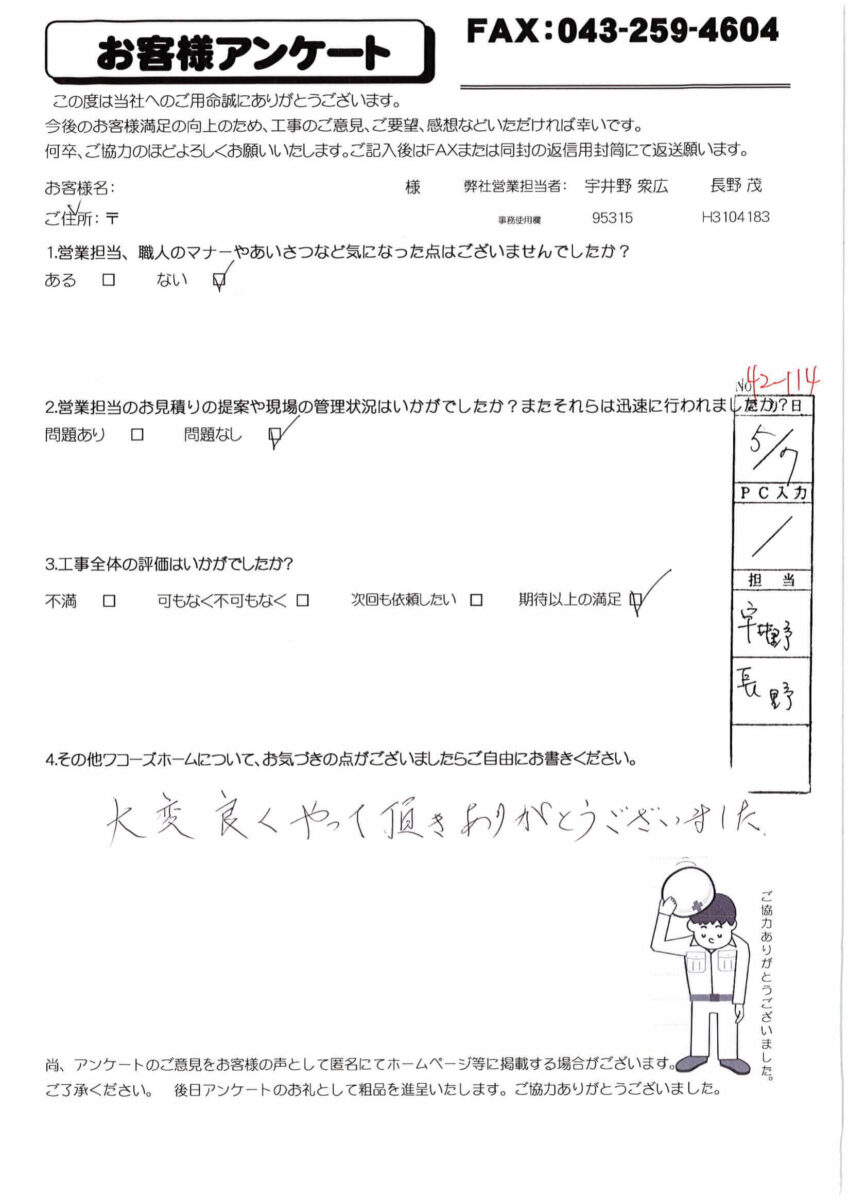 お客様アンケート
FAX:043-259-4604
この度は当社へのご用命誠にありがとうございます。
今後のお客様満足の向上のため、工事のご意見、ご要望、感想などいただければ幸いです。
何卒、ご協力のほどよろしくお願いいたします。ご記入後はFAXまたは同封の返信用封筒にて返送願います。
お客様名: 様 弊社営業担当者: 宇井野 衆広 長野 茂
ご住所:〒 事務使用欄 95315 H3104183
1.営業担当、職人のマナーやあいさつなど気になった点はございませんでしたか?
ある □ ない ☑
No 42-114
2.営業担当のお見積りの提案や現場の管理状況はいかがでしたか?またそれらは迅速に行われましたか?
日
問題あり □ 問題なし ☑
5/7
PC入力
/
3.工事全体の評価はいかがでしたか?
担当
不満 □ 可もなく不可もなく □ 次回も依頼したい □ 期待以上の満足 ☑
宇井野
長野
4.その他ワコーズホームについて、お気づきの点がございましたらご自由にお書きください。
大変良くやって頂きありがとうございました.
ご協力ありがとうございました。
尚、アンケートのご意見をお客様の声として匿名にてホームページ等に掲載する場合がございます。
ご了承ください。 後日アンケートのお礼として粗品を進呈いたします。ご協力ありがとうございました。